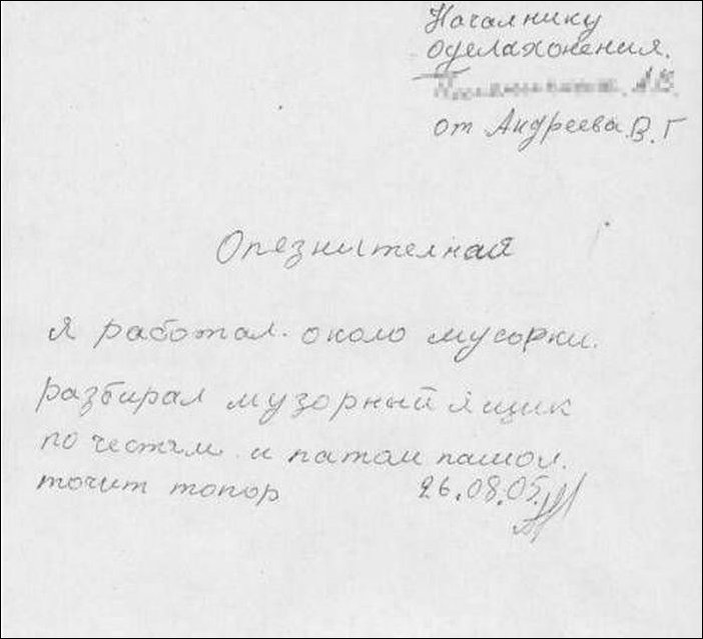 Началнику
оделахонения.
А.В.
от Андреева В.Г
Опезнителная
Я работал. около мусорки.
разбирал музорный ящик
по честям и патом пашол.
точит топор
26.08.05.